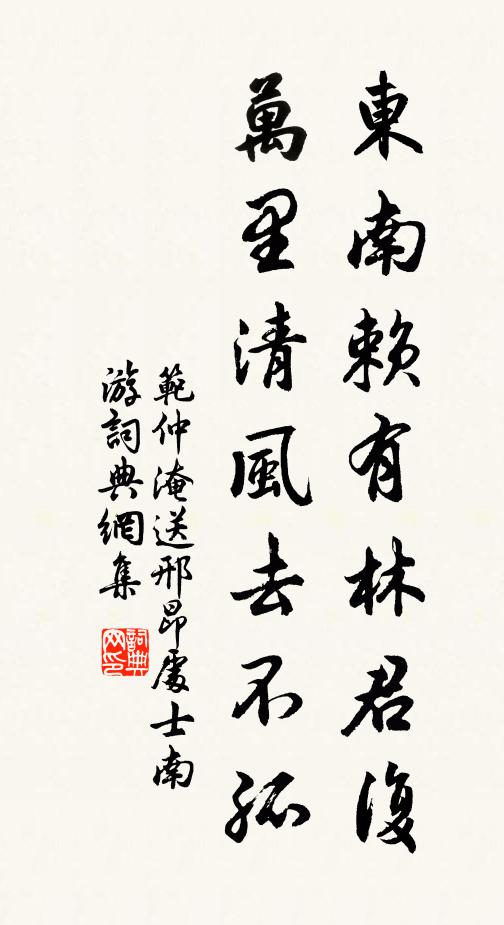 東南賴有林君復
萬里清風去不孤
範仲淹送邢昂處士南
游詞典網集
詞典网印